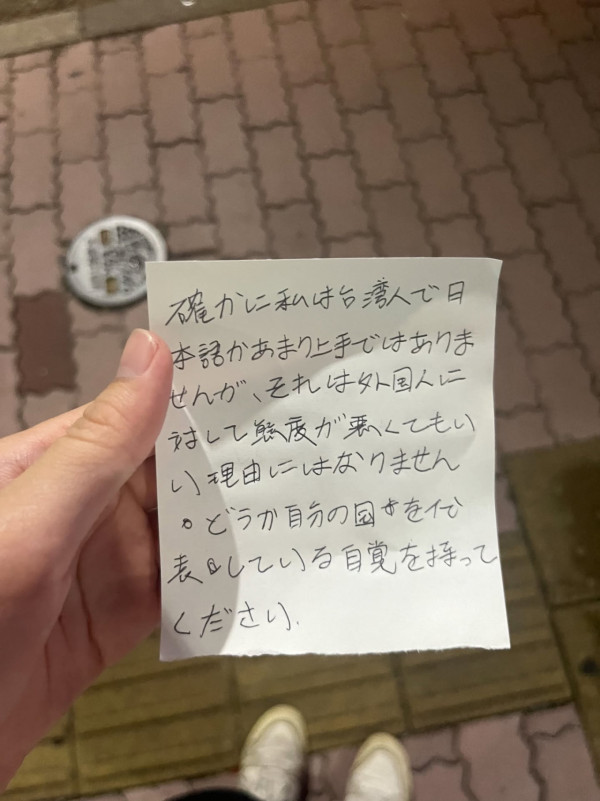 確かに私は台湾人で日
本語があまり上手ではありま
せんが、それは外国人に
対して態度が悪くてもい
い理由にはなりません
。どうか自分の国を代
表している自覚を持って
ください.